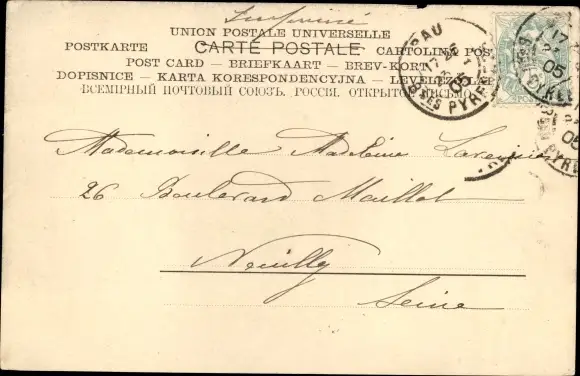 Imprimé
UNION POSTALE UNIVERSELLE
POSTKARTE CARTE POSTALE CARTOLINA POS
POST CARD — BRIEFKAART — BREV-KORT
DOPISNICE — KARTA KORESPONDENCYJNA — LEVELEZ LAP
ВСЕМІРНЫЙ ПОЧТОВЫЙ СОЮЗЪ. РОССІЯ. ОТКРЫТОЕ ПИСЬМО
PAU
17 25
05
BSES PYR
17
05
PYR
05
PYR
Mademoiselle Madeleine
26 Boulevard Maillot
Neuilly
Seine